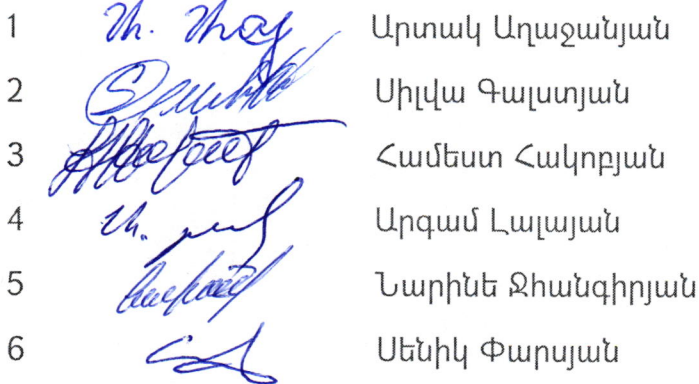 1 Արտակ Աղաջանյան
2 Սիլվա Գալստյան
3 Համեստ Հակոբյան
4 Արգամ Լալայան
5 Նարինե Ջհանգիրյան
6 Սենիկ Փարսյան